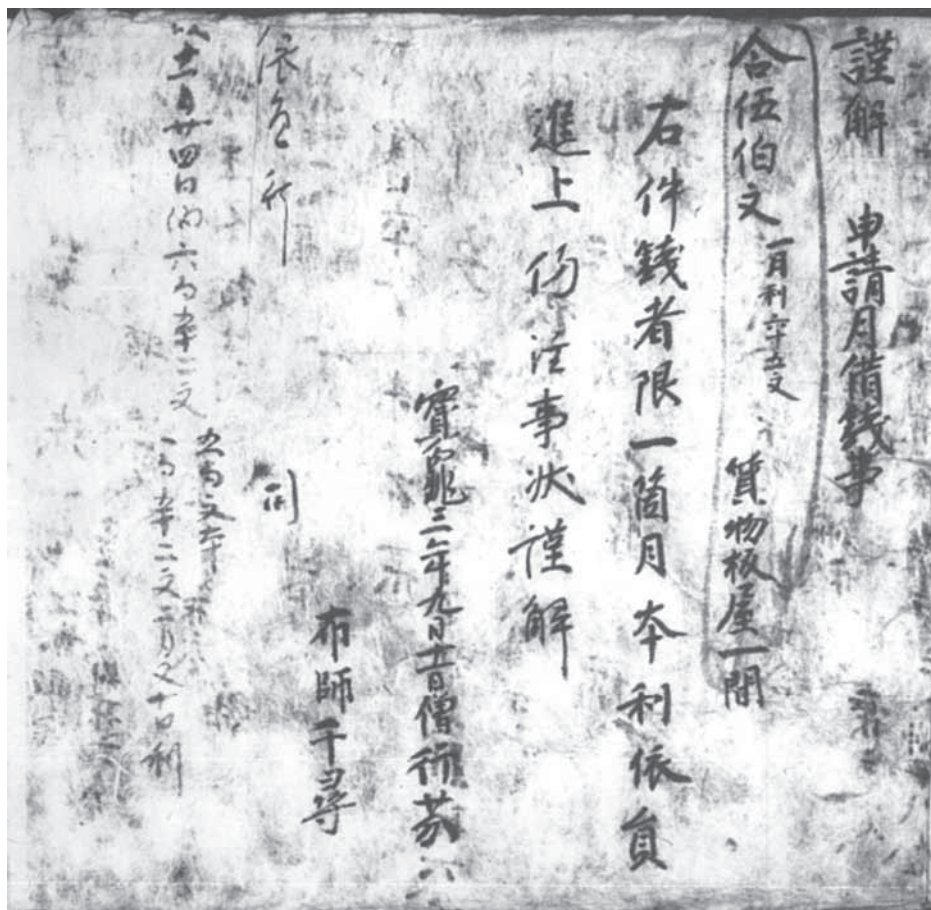 謹解 申請月借錢事
合伍伯文 一月利六十五文 質物板屋一間
右件錢者限一箇月本利依員
進上仍注事状謹解
寶龜三年九月廿一日僧行芬
布師千尋
依員行
以十一月廿四日納六百五十二文
五百文本
一百五十二文二月之十日利